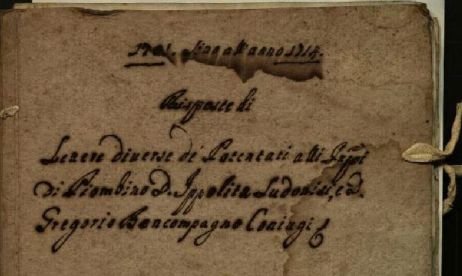 1701. fino all'anno 1714.
Risposte di
Lettere diverse di Potentati alli Prñpi
di Piombino D. Ippolita Ludovisi, e D.
Gregorio Boncompagno Coniugi